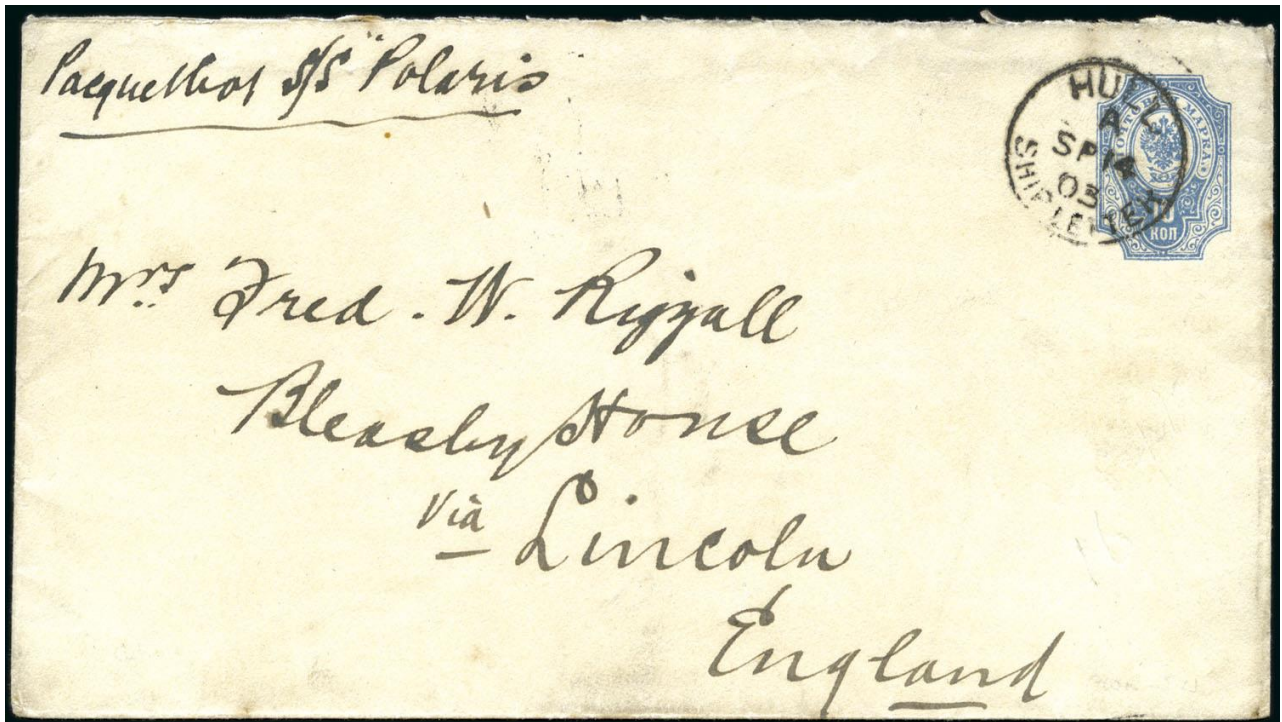 Pacquetbot S/S "Polaris
HULL
A
SP 14
03
SHIP LETTER
ПОЧТОВАЯ МАРКА.
10
КОП
Mrs Fred. W. Riggall
Bleasby House
via Lincoln
England